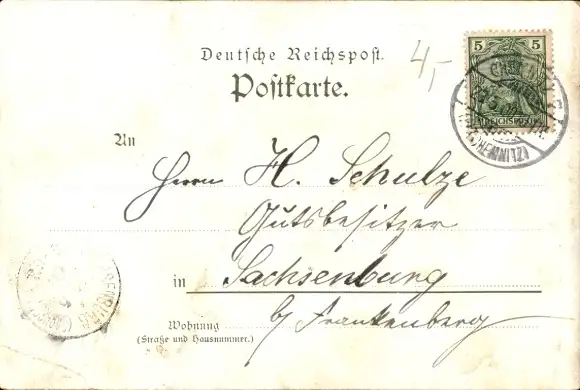 Deutsche Reichspost.
4,-
Postkarte.
5 5
REICHSPOST
(CHEMNITZ)
An
Herrn H. Schulze
Gutsbesitzer
in Sachsenburg
b/ Frankenberg
Wohnung
(Straße und Hausnummer.)